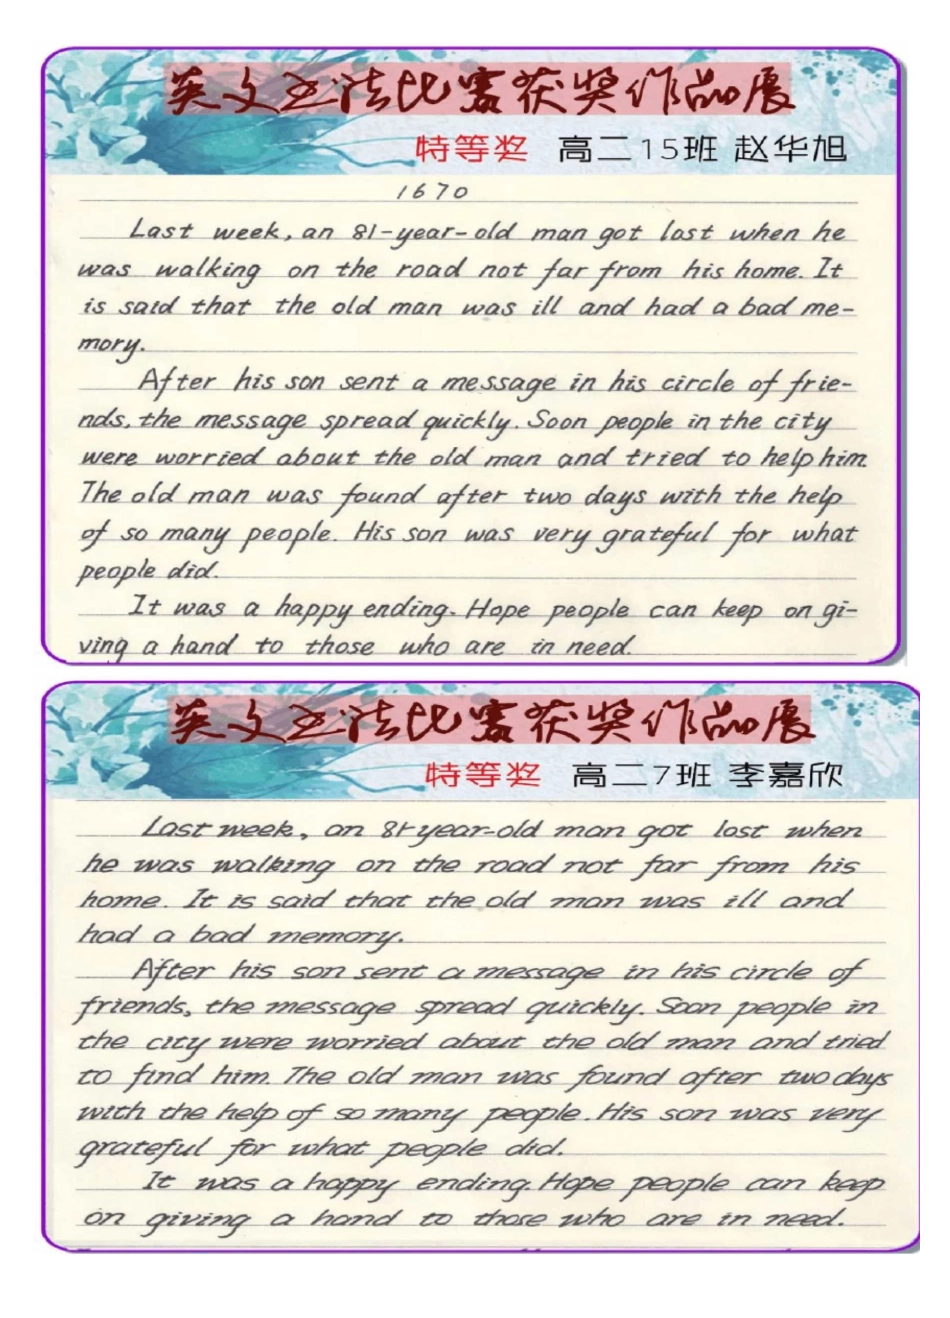 英文书法比赛获奖作品展
特等奖 高二15班 赵华旭
1670
Last week, an 81-year-old man got lost when he
was walking on the road not far from his home. It
is said that the old man was ill and had a bad me-
mory.
After his son sent a message in his circle of frie-
nds, the message spread quickly. Soon people in the city
were worried about the old man and tried to help him.
The old man was found after two days with the help
of so many people. His son was very grateful for what
people did.
It was a happy ending. Hope people can keep on gi-
ving a hand to those who are in need.
英文书法比赛获奖作品展
特等奖 高二7班 李嘉欣
Last week, an 81-year-old man got lost when
he was walking on the road not far from his
home. It is said that the old man was ill and
had a bad memory.
After his son sent a message in his circle of
friends, the message spread quickly. Soon people in
the city were worried about the old man and tried
to find him. The old man was found after two days
with the help of so many people. His son was very
grateful for what people did.
It was a happy ending. Hope people can keep
on giving a hand to those who are in need.